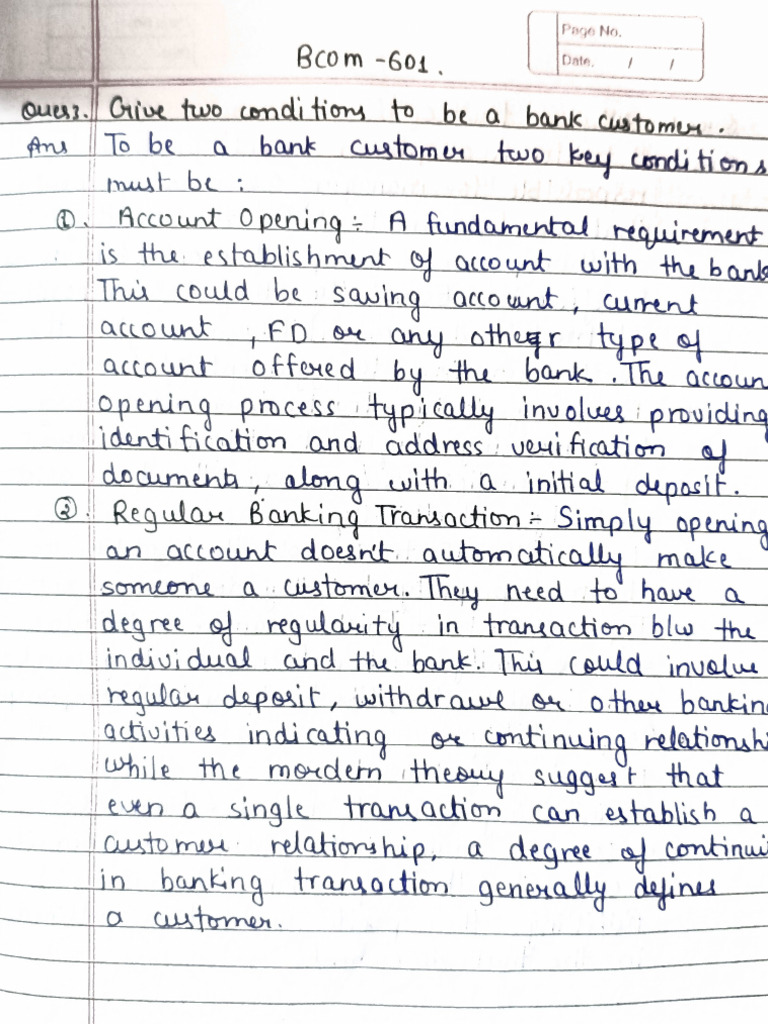 Page No.
Date. / /
Bcom -601.
Ques3. Give two conditions to be a bank customer.
Ans To be a bank customer two key conditions
must be :
①. Account Opening :- A fundamental requirement
is the establishment of account with the bank
This could be saving account, current
account , FD or any other type of
account offered by the bank. The accoun
opening process typically involves providing
identification and address verification of
documents, along with a initial deposit.
②. Regular Banking Transaction :- Simply opening
an account doesn't automatically make
someone a customer. They need to have a
degree of regularity in transaction b/w the
individual and the bank. This could involve
regular deposit, withdrawl or other bankin
activities indicating or continuing relationshi
while the mordern theory suggest that
even a single transaction can establish a
customer relationship, a degree of continui
in banking transaction generally defines
a customer.